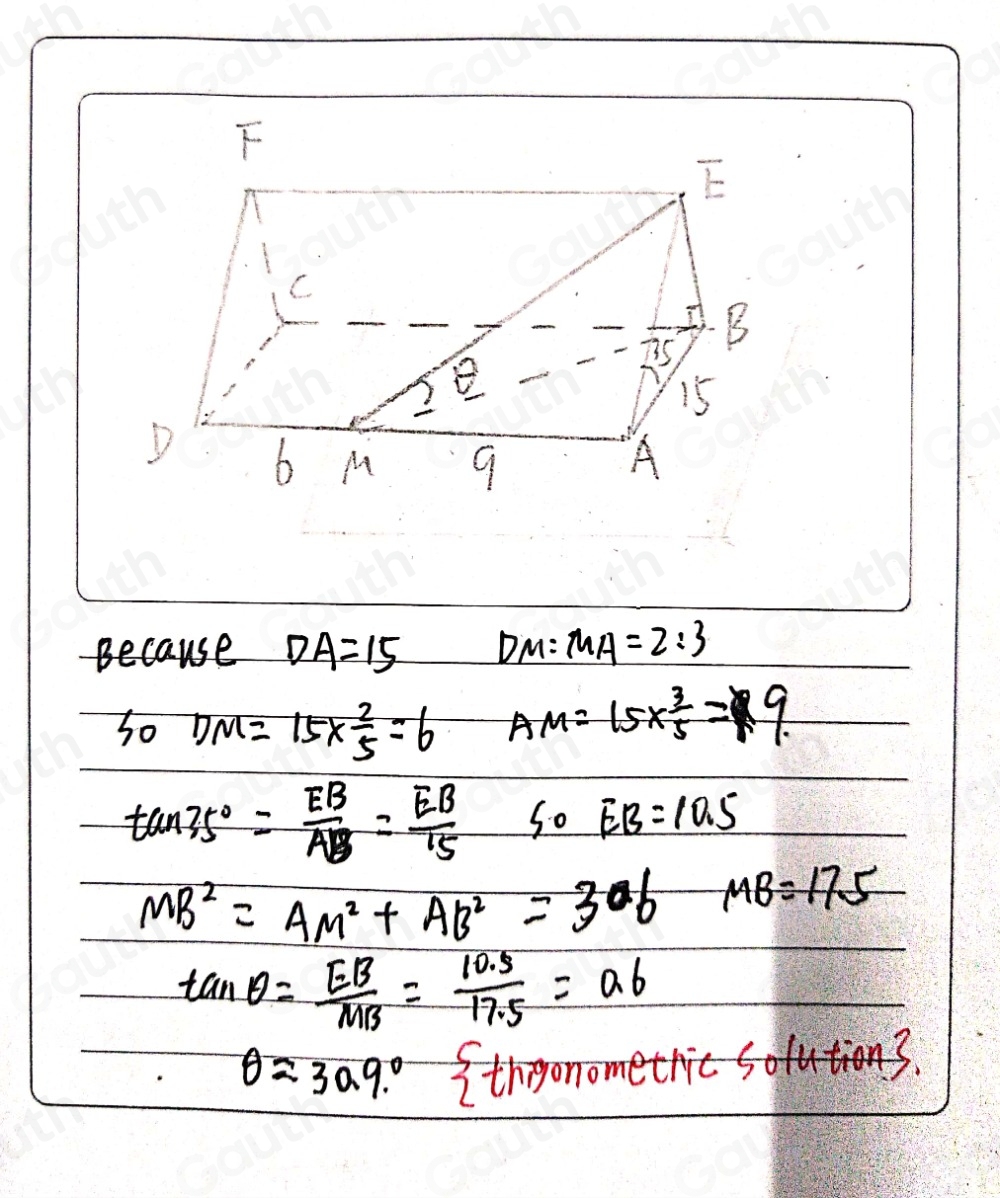 F
E
C
B
35
θ
15
D
6 M 9 A
Because DA=15 DM:MA=2:3
So DM=15×2/5=6 AM=15×3/5=9.
tan35°=EB/AB=EB/15 So EB=10.5
MB²=AM²+AB²=306 MB=17.5
tanθ=EB/MB=10.5/17.5=0.6
θ≈30.9.° {thigonometric Solution}.